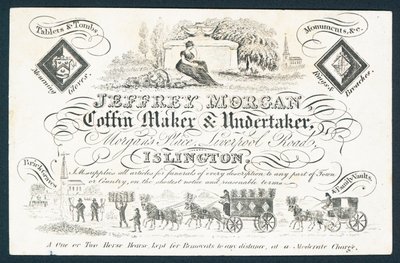 Tablets & Tombs,
Monuments, &c.
Mourning Gloves.
Brooches.
JEFFREY MORGAN,
Coffin Maker & Undertaker,
Morgan's Place, Liverpool Road,
ISLINGTON.
J.M. supplies all articles for funerals of every description to any part of Town
or Country, on the shortest notice and reasonable terms.
Brick Graves
& Family Vaults.
A One or Two Horse Hearse, kept for Removals to any distance, at a Moderate Charge.